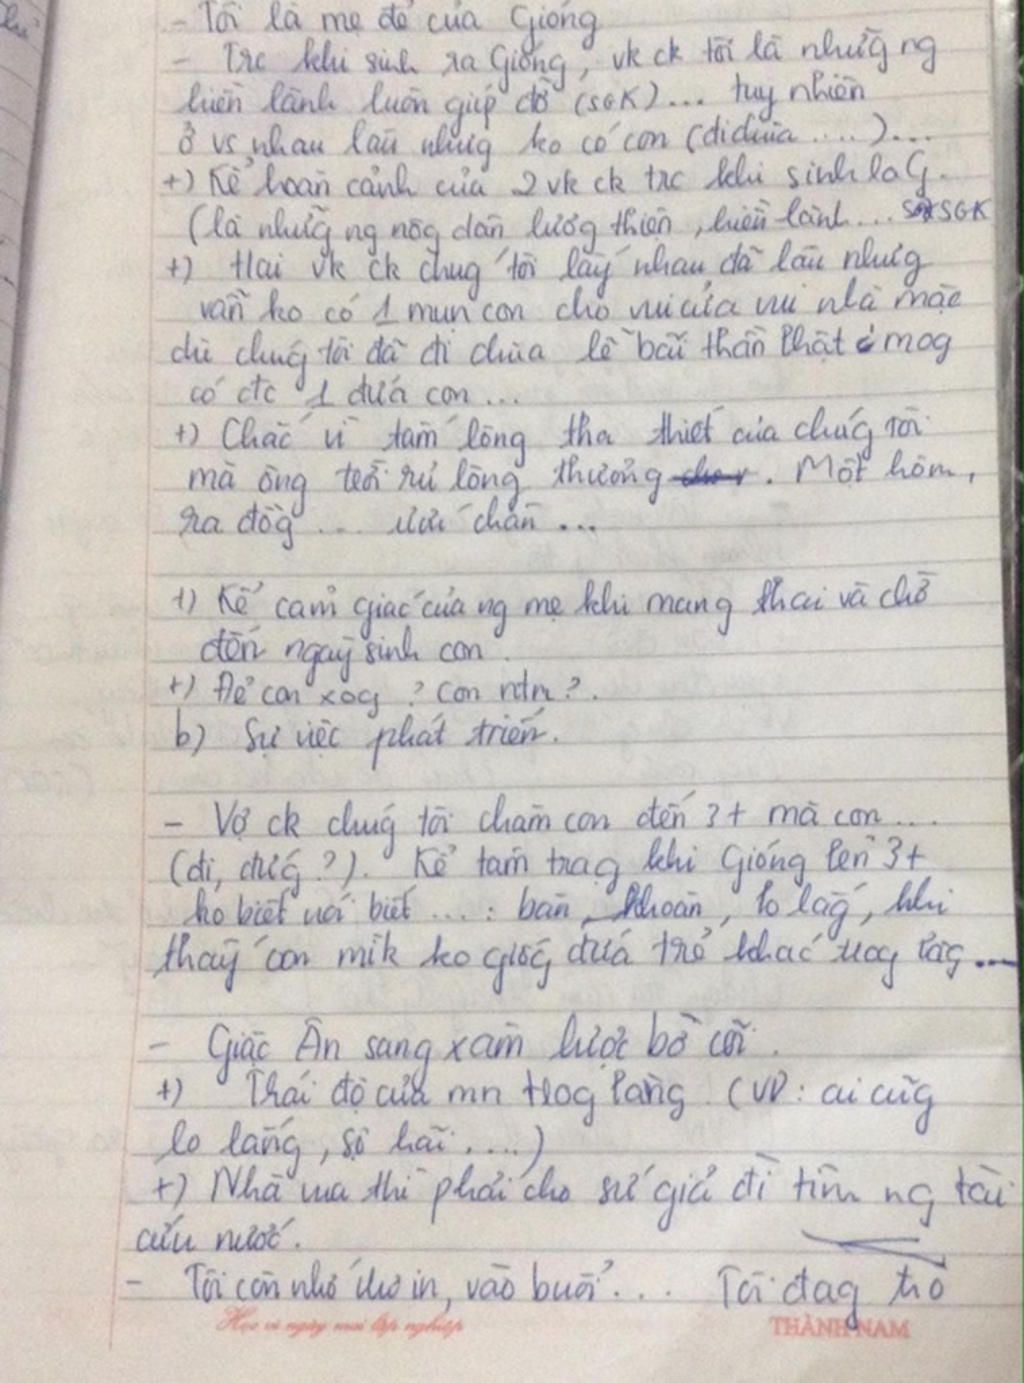 - Tôi là mẹ đẻ của Gióng
- Trc khi sinh ra Gióng, vk ck tôi là những ng
hiền lành luôn giúp đỡ (SGK)... tuy nhiên
ở vs nhau lâu nhưg ko có con (đi chùa ....)...
+) Kể hoàn cảnh của 2 vk ck trc khi sinh la G.
(là nhữg ng nôg dân lươg thiện, hiền lành... SGK
+) Hai vk ck chúg tôi lấy nhau đã lâu nhưg
vẫn ko có 1 mụn con cho vui cửa vui nhà mặc
dù chúg tôi đã đi chùa lễ bái thần Phật mog
có đc 1 đứa con...
+) Chắc vì tấm lòng tha thiết của chúg tôi
mà ông trời rủ lòng thương. Một hôm,
ra đồg ... ướm chân ...
+) Kể cảm giác của ng mẹ khi mang thai và chờ
đến ngày sinh con.
+) Đẻ con xog ? Con ntn ?.
b) Sự việc phát triển.
- Vợ ck chúg tôi chăm con đến 3t mà con ...
(đi, đứg ?). Kể tâm trạg khi Gióng lên 3t
ko biết nói biết ....: băn khoăn, lo lắg, khi
thấy con mik ko giốg đứa trẻ khác trog làg ...
- Giặc Ân sang xâm lược bờ cõi.
+) Thái độ của mn trog làng. (VD: ai cũg
lo lắng, sợ hãi ....)
+) Nhà vua thì phái cho sứ giả đi tìm ng tài
cứu nước.
- Tôi còn nhớ như in, vào buổi ... Tôi đag
Học vì ngày mai lập nghiệp
THÀNH NAM